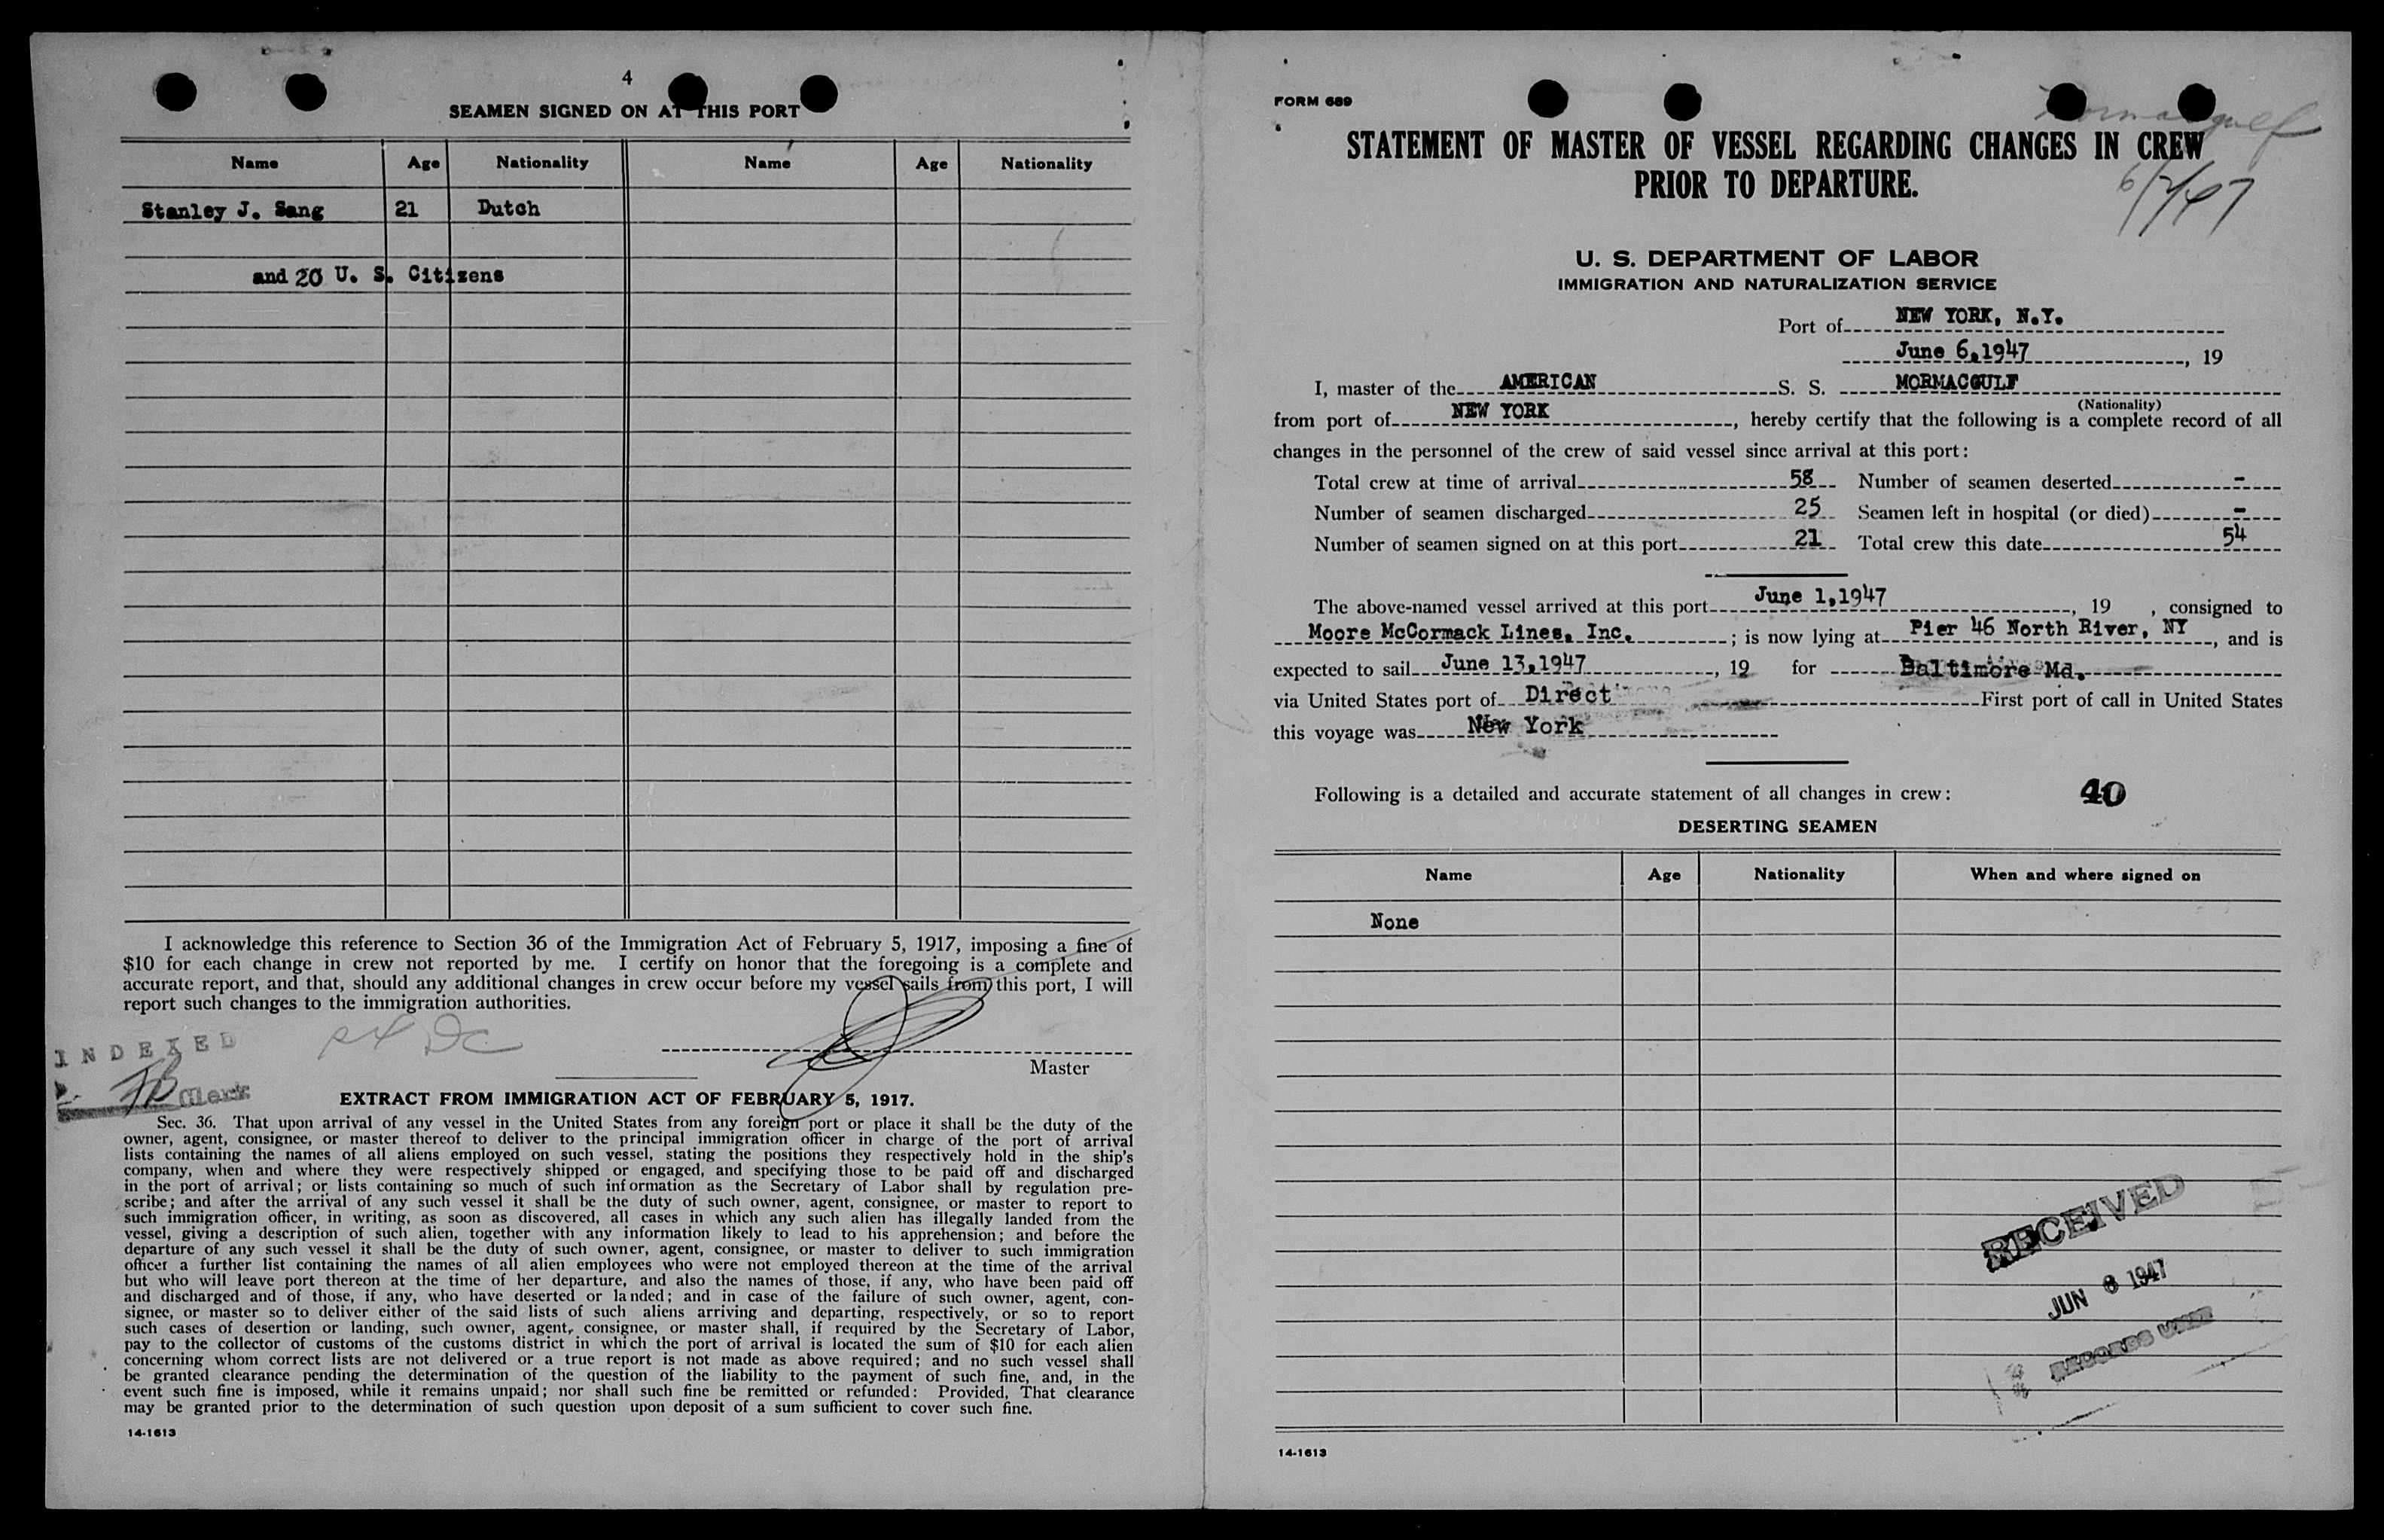 4
SEAMEN SIGNED ON AT THIS PORT
Name Age Nationality Name Age Nationality
Stanley J. Sang 21 Dutch
and 20 U. S. Citizens
I acknowledge this reference to Section 36 of the Immigration Act of February 5, 1917, imposing a fine of
$10 for each change in crew not reported by me. I certify on honor that the foregoing is a complete and
accurate report, and that, should any additional changes in crew occur before my vessel sails from this port, I will
report such changes to the immigration authorities.
INDEXED
Clerk
Master
EXTRACT FROM IMMIGRATION ACT OF FEBRUARY 5, 1917.
Sec. 36. That upon arrival of any vessel in the United States from any foreign port or place it shall be the duty of the
owner, agent, consignee, or master thereof to deliver to the principal immigration officer in charge of the port of arrival
lists containing the names of all aliens employed on such vessel, stating the positions they respectively hold in the ship's
company, when and where they were respectively shipped or engaged, and specifying those to be paid off and discharged
in the port of arrival; or lists containing so much of such information as the Secretary of Labor shall by regulation pre-
scribe; and after the arrival of any such vessel it shall be the duty of such owner, agent, consignee, or master to report to
such immigration officer, in writing, as soon as discovered, all cases in which any such alien has illegally landed from the
vessel, giving a description of such alien, together with any information likely to lead to his apprehension; and before the
departure of any such vessel it shall be the duty of such owner, agent, consignee, or master to deliver to such immigration
officer a further list containing the names of all alien employees who were not employed thereon at the time of the arrival
but who will leave port thereon at the time of her departure, and also the names of those, if any, who have been paid off
and discharged and of those, if any, who have deserted or landed; and in case of the failure of such owner, agent, con-
signee, or master so to deliver either of the said lists of such aliens arriving and departing, respectively, or so to report
such cases of desertion or landing, such owner, agent, consignee, or master shall, if required by the Secretary of Labor,
pay to the collector of customs of the customs district in which the port of arrival is located the sum of $10 for each alien
concerning whom correct lists are not delivered or a true report is not made as above required; and no such vessel shall
be granted clearance pending the determination of the question of the liability to the payment of such fine, and, in the
event such fine is imposed, while it remains unpaid; nor shall such fine be remitted or refunded: Provided, That clearance
may be granted prior to the determination of such question upon deposit of a sum sufficient to cover such fine.
14-1613
FORM 689
Mormacgulf
STATEMENT OF MASTER OF VESSEL REGARDING CHANGES IN CREW
PRIOR TO DEPARTURE.
U. S. DEPARTMENT OF LABOR
IMMIGRATION AND NATURALIZATION SERVICE
Port of NEW YORK, N.Y.
June 6,1947, 19
I, master of the AMERICAN S. S. MORMACGULF
(Nationality)
from port of NEW YORK, hereby certify that the following is a complete record of all
changes in the personnel of the crew of said vessel since arrival at this port:
Total crew at time of arrival 58 Number of seamen deserted -
Number of seamen discharged 25 Seamen left in hospital (or died) -
Number of seamen signed on at this port 21 Total crew this date 54
The above-named vessel arrived at this port June 1,1947, 19 , consigned to
Moore McCormack Lines, Inc.; is now lying at Pier 46 North River, NY, and is
expected to sail June 13,1947, 19 for Baltimore Md.
via United States port of Direct First port of call in United States
this voyage was New York
Following is a detailed and accurate statement of all changes in crew: 40
DESERTING SEAMEN
Name Age Nationality When and where signed on
None
RECEIVED
JUN 6 1947
RECORDS UNIT
14-1613